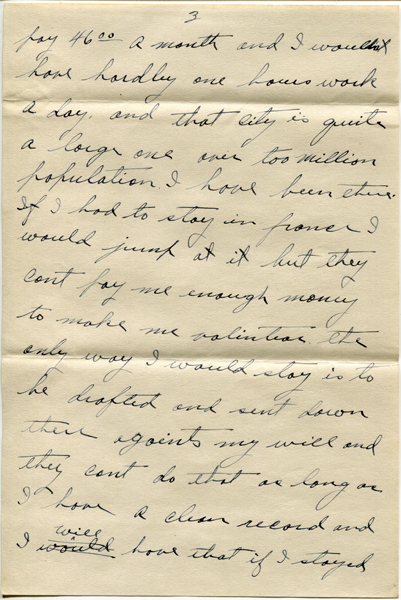 3
pay 46 00 a month and I wouldnt
have hardley one hours work
a day. and that city is quite
a large one over too million
population. I have been there.
If I had to stay in france I
would jump at it but they
cant pay me enough money
to make me valinteer. the
only way I would stay is to
be drafted and sent down
there againts my will and
they cant do that as long as
I have a clean record and
will
I would have that if I stayed